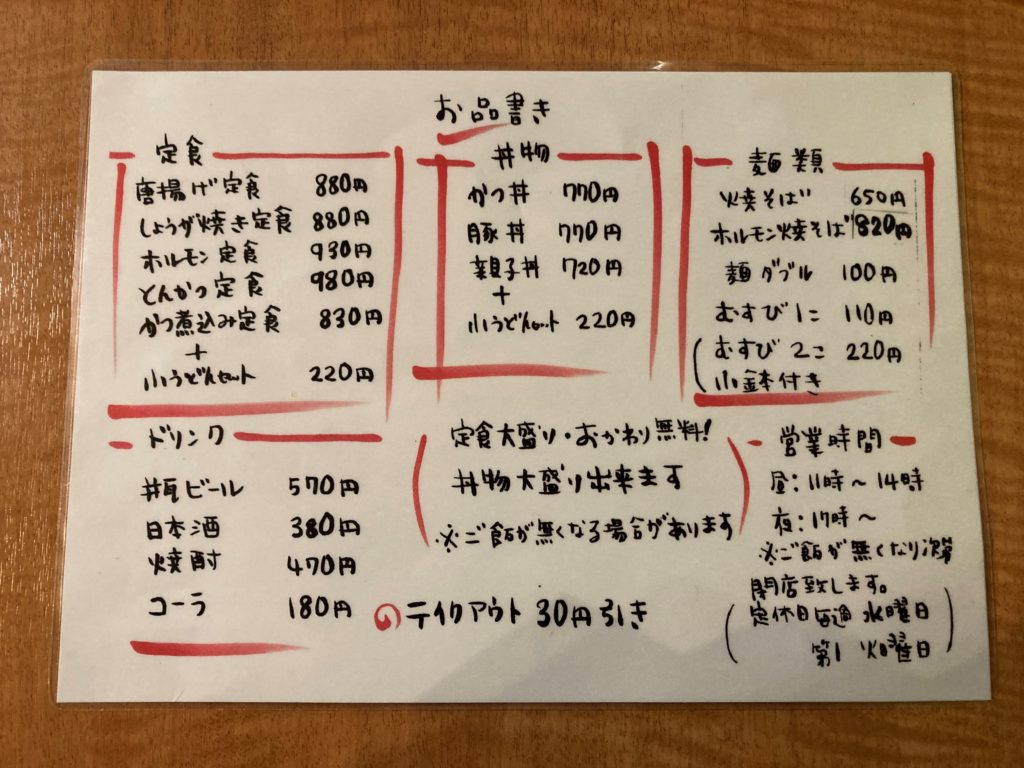 お品書き
定食
唐揚げ定食 880円
しょうが焼き定食 880円
ホルモン定食 930円
とんかつ定食 980円
かつ煮込み定食 830円
+
小うどんセット 220円
丼物
かつ丼 770円
豚丼 770円
親子丼 720円
+
小うどんセット 220円
麺類
焼そば 650円
ホルモン焼そば 820円
麺ダブル 100円
むすび1こ 110円
(むすび2こ 220円
小鉢付き
ドリンク
瓶ビール 570円
日本酒 380円
焼酎 470円
コーラ 180円
定食大盛り・おかわり無料!
丼物大盛り出来ます
※ご飯が無くなる場合があります
テイクアウト 30円引き
営業時間
昼:11時~14時
夜:17時~
※ご飯が無くなり次第
閉店致します。
(定休日毎週 水曜日
第1 火曜日)